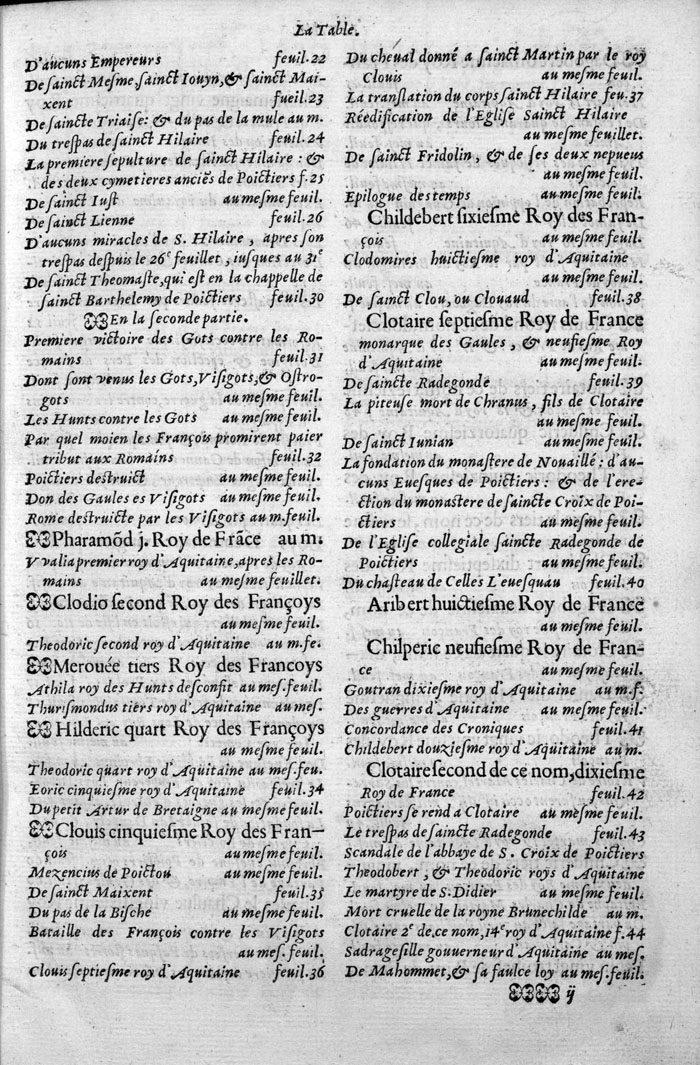 La Table.
D'aucuns Empereurs feuil.22
De sainct Mesme, sainct Iouyn, & sainct Maixent
xent fueil.23
De saincte Triaise: & du pas de la mule au m.
Du trespas de sainct Hilaire feuil.24
La premiere sepulture de sainct Hilaire: &
des deux cymetieres anciēs de Poictiers f.25
De sainct Iust au mesme feuil.
De sainct Lienne feuil.26
D'aucuns miracles de S. Hilaire, apres son
trespas despuis le 26e feuillet, iusques au 31e
De sainct Theomaste, qui est en la chappelle de
sainct Barthelemy de Poictiers feuil.30
En la seconde partie.
Premiere victoire des Gots contre les Ro-
mains feuil.31
Dont sont venus les Gots, Visigots, & Ostro-
gots au mesme feuil.
Les Hunts contre les Gots au mesme feuil.
Par quel moien les François promirent paier
tribut aux Romains feuil.32
Poictiers destruict au mesme feuil.
Don des Gaules es Visigots au mesme feuil.
Rome destruicte par les Visigots au m.feuil.
Pharamōd j. Roy de Frāce au m.
Vvalia premier roy d'Aquitaine, apres les Ro-
mains au mesme feuillet.
Clodio second Roy des Françoys
au mesme feuil.
Theodoric second roy d'Aquitaine au m.fe.
Merouée tiers Roy des Francoys
Athila roy des Hunts desconfit au mes.feuil.
Thurismondus tiers roy d'Aquitaine au mes.
Hilderic quart Roy des Françoys
au mesme feuil.
Theodoric quart roy d'Aquitaine au mes.feu.
Eoric cinquiesme roy d'Aquitaine feuil.34
Du petit Artur de Bretaigne au mesme feuil.
Clouis cinquiesme Roy des Fran-
çois au mesme feuil.
Mezencius de Poictou au mesme feuil.
De sainct Maixent feuil.35
Du pas de la Bische au mesme feuil.
Bataille des François contre les Visigots
au mes.feuil.
Clouis septiesme roy d'Aquitaine feuil.36
Du cheual donné a sainct Martin par le roy
Clouis au mesme feuil.
La translation du corps sainct Hilaire feu.37
Réedification de l'Eglise Sainct Hilaire
au mesme feuillet.
De sainct Fridolin, & de ses deux nepueus
au mesme feuil.
Epilogue des temps au mesme feuil.
Childebert sixiesme Roy des Fran-
çois au mesme feuil.
Clodomires huictiesme roy d'Aquitaine
au mesme feuil.
De sainct Clou, ou Clouaud feuil.38
Clotaire septiesme Roy de France
monarque des Gaules, & neufiesme Roy
d'Aquitaine au mesme feuil.
De saincte Radegonde feuil.39
La piteuse mort de Chranus, fils de Clotaire
au mesme feuil.
De sainct Iunian au mesme feuil.
La fondation du monastere de Nouaillé: d'au-
cuns Euesques de Poictiers: & de l'ere-
ction du monastere de saincte Croix de Poi-
ctiers au mesme feuil.
De l'Eglise collegiale saincte Radegonde de
Poictiers au mesme feuil.
Du chasteau de Celles L'euesquau feuil.40
Aribert huictiesme Roy de France
au mesme feuil.
Chilperic neufiesme Roy de Fran-
ce au mesme feuil.
Goutran dixiesme roy d'Aquitaine au m.f.
Des guerres d'Aquitaine au mesme feuil.
Concordance des Croniques feuil.41
Childebert douziesme roy d'Aquitaine au m.
Clotaire second de ce nom, dixiesme
Roy de France feuil.42
Poictiers se rend a Clotaire au mesme feuil.
Le trespas de saincte Radegonde feuil.43
Scandale de l'abbaye de S. Croix de Poictiers
Theodobert, & Theodoric roys d'Aquitaine
Le martyre de S. Didier au mesme feuil.
Mort cruelle de la royne Brunechilde au m.
Clotaire 2e de, ce nom, 14e roy d'Aquitaine f.44
Sadragesille gouuerneur d'Aquitaine au mes.
De Mahommet, & sa faulce loy au mes.feuil.
ij